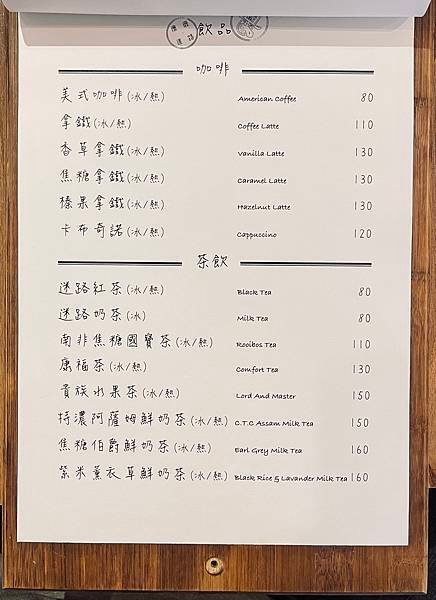 飲品
咖啡
美式咖啡(冰/熱) American Coffee 80
拿鐵(冰/熱) Coffee Latte 110
香草拿鐵(冰/熱) Vanilla Latte 130
焦糖拿鐵(冰/熱) Caramel Latte 130
榛果拿鐵(冰/熱) Hazelnut Latte 130
卡布奇諾(冰/熱) Cappuccino 120
茶飲
迷路紅茶(冰/熱) Black Tea 80
迷路奶茶(冰) Milk Tea 80
南非焦糖國寶茶(冰/熱) Rooibos Tea 110
康福茶(冰/熱) Comfort Tea 130
貴族水果茶(冰/熱) Lord And Master 150
特濃阿薩姆鮮奶茶(冰/熱) C.T.C Assam Milk Tea 150
焦糖伯爵鮮奶茶(冰/熱) Earl Grey Milk Tea 160
紫米薰衣草鮮奶茶(冰/熱) Black Rice & Lavander Milk Tea 160